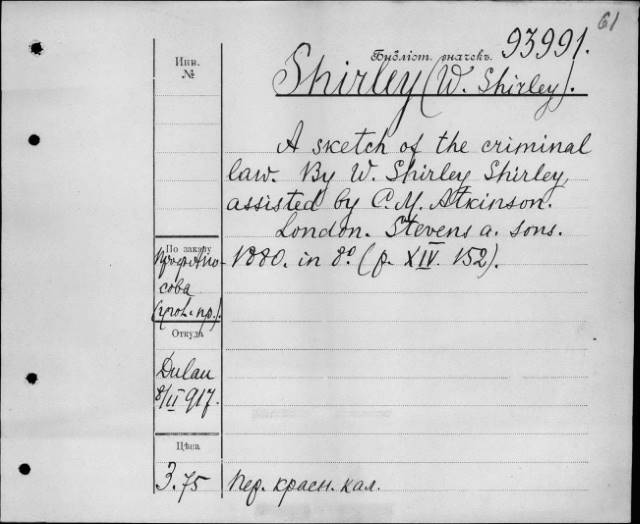 61
Библіот. значекъ. 93991.
Инв.
№
Shirley (W. Shirley).
A sketch of the criminal
law. By W. Shirley Shirley,
assisted by C. M. Atkinson.
London. Stevens a. sons.
1880. in 8º. (p. XIV. 152).
По заказу
сова
Откуда
Dulau
8/II 917.
Цѣна
3.75
пер. красн. кал.